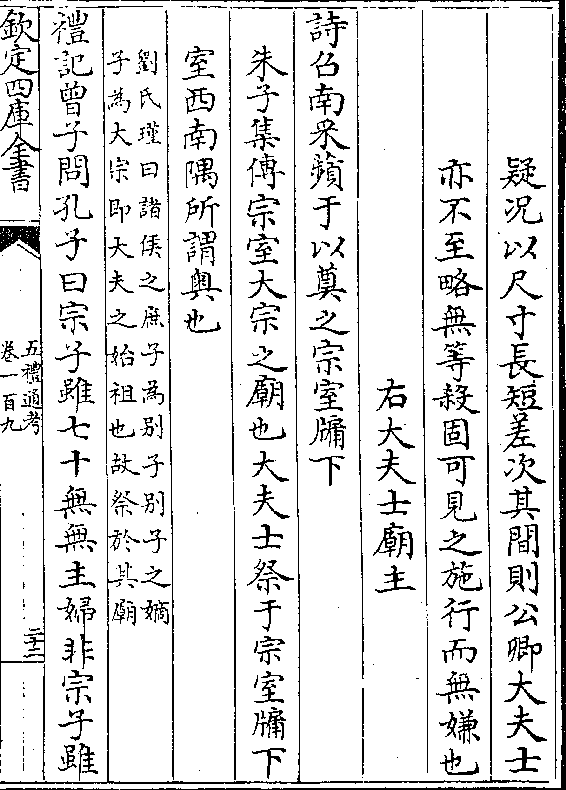 疑况以尺寸長短差次其間則公卿大夫士
亦不至略無等殺固可見之施行而無嫌也
右大夫士廟主
詩召南采蘋于以奠之宗室牖下
朱子集傳宗室大宗之廟也大夫士祭于宗室牖下
室西南隅所謂奧也
劉氏瑾曰諸侯之庶子為别子别子之嫡
子為大宗即大夫之始祖也故祭於其廟
禮記曾子問孔子曰宗子雖七十無無主婦非宗子雖
欽定四庫全書
五禮通考
卷一百九
二十二